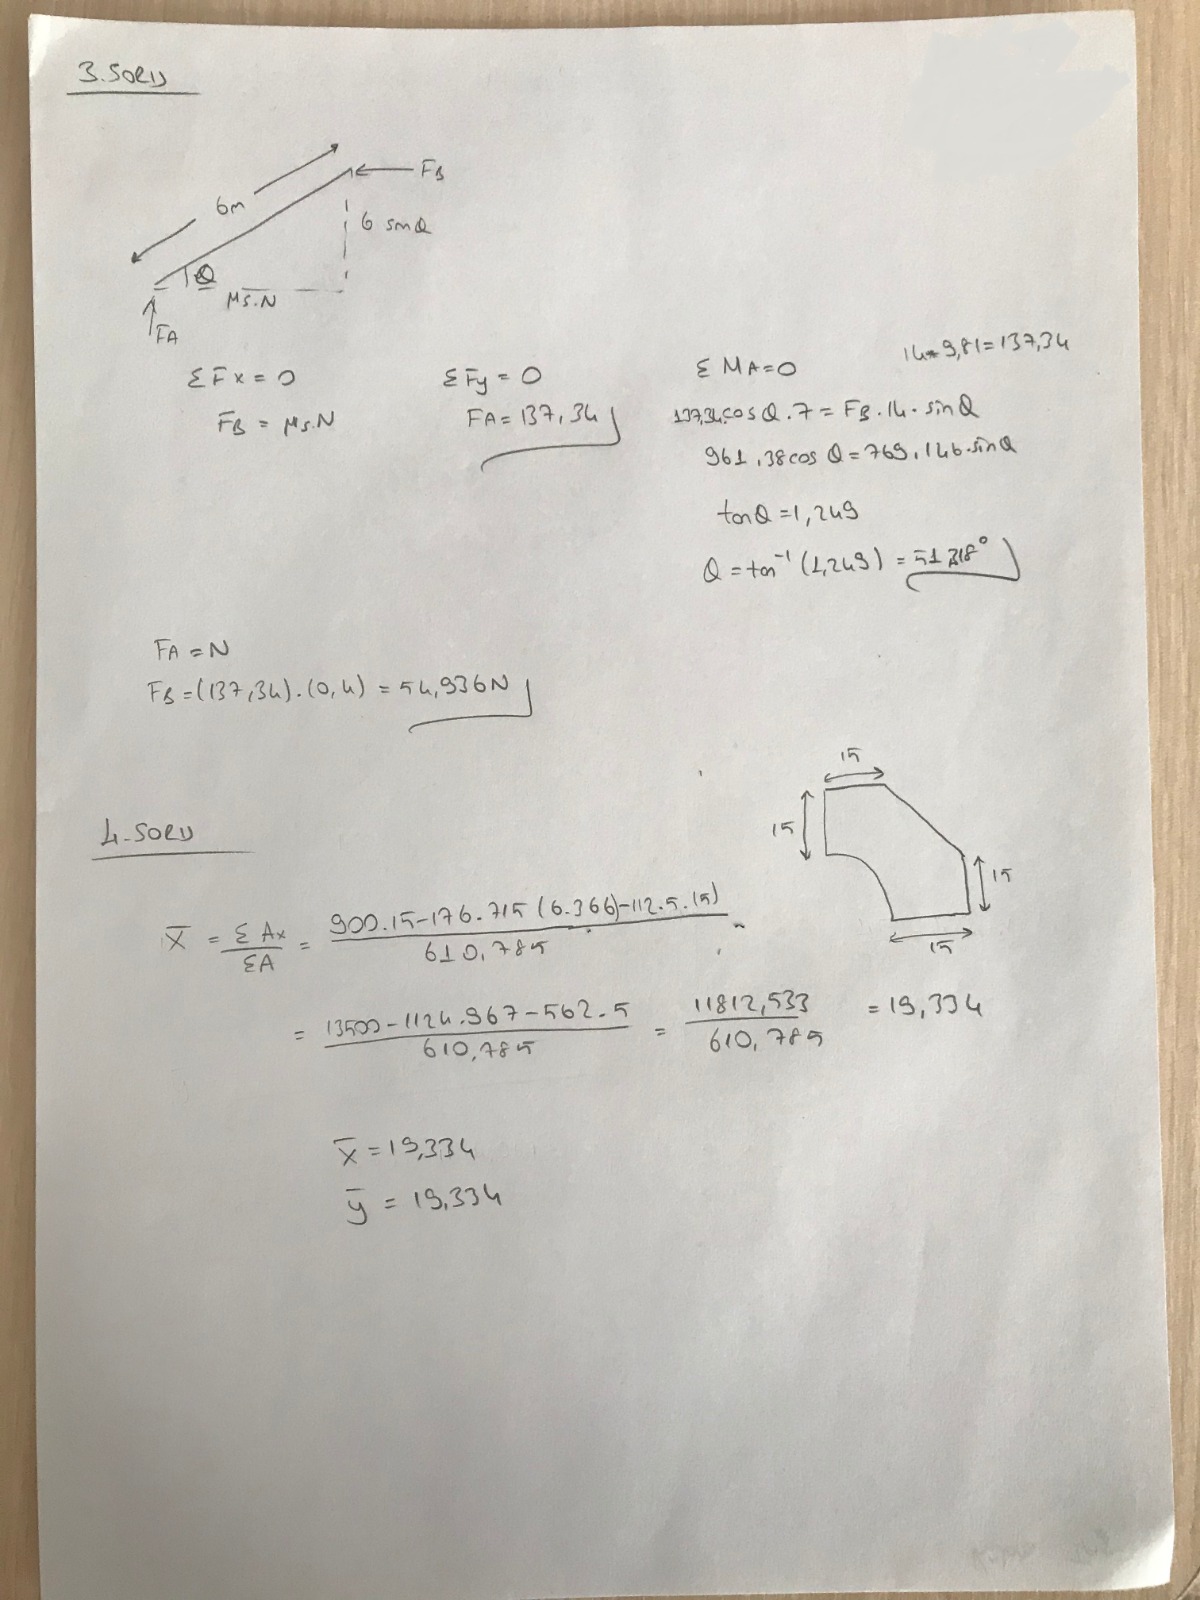 3.SORU
6m
FB
6 sinθ
θ
μs.N
FA
ΣFx=0
FB = μs.N
ΣFy=0
FA=137,34
14*9,81=137,34
ΣMA=0
137,34.cosθ.7=FB.14.sinθ
961,38cosθ=769,146.sinθ
tanθ=1,249
θ=tan⁻¹(1,249)=51,318°
FA=N
FB=(137,34).(0,4)=54,936N
4.SORU
15
15
15
15
x̄ = ΣAx/ΣA = 900.15-176.715(6.366)-112.5.(5)/610,785
= 13500-1124.967-562.5/610,785 = 11812,533/610,785 =19,334
x̄=19,334
ȳ=19,334